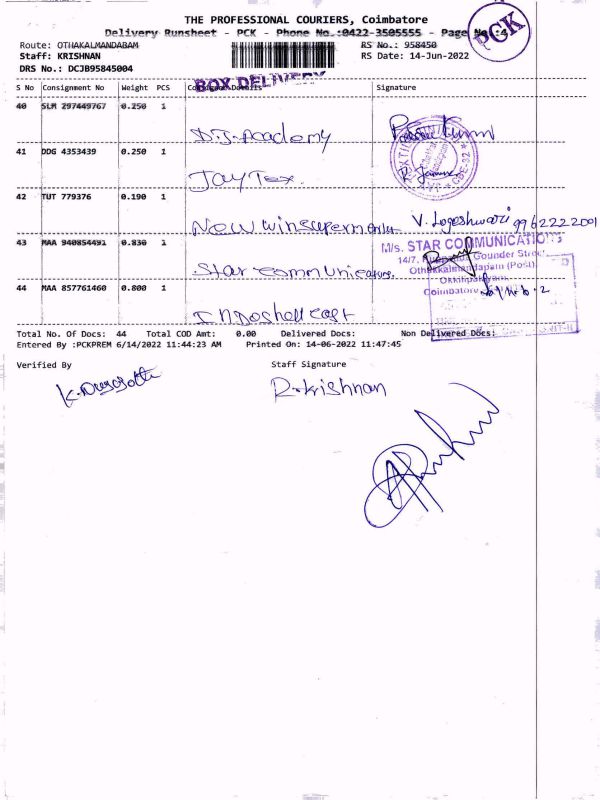 THE PROFESSIONAL COURIERS, Coimbatore
Delivery Runsheet - PCK - Phone No.:0422-3505555 - Page No.:4
PCK
Route: OTHAKALMANDABAM
RS No.: 958450
Staff: KRISHNAN
RS Date: 14-Jun-2022
DRS No.: DCJB95845004
BOX DELIVERY
S No Consignment No Weight PCS Consignee Details Signature
40 SLM 297449767 0.250 1
D.J. Academy
41 DDG 4353439 0.250 1
Jay Tex.
42 TUT 779376 0.190 1
New win supermarket V. Logeshwari 9962222001
43 MAA 940854491 0.830 1
M/s. STAR COMMUNICATIONS
Gounder Street
Othakkalmandapam (Post)
Coimbatore
Star communications.
44 MAA 857761460 0.800 1
Indoshell cast
Total No. Of Docs: 44 Total COD Amt: 0.00 Delivered Docs: Non Delivered Docs:
Entered By :PCKPREM 6/14/2022 11:44:23 AM Printed On: 14-06-2022 11:47:45
Verified By Staff Signature
R. Krishnan